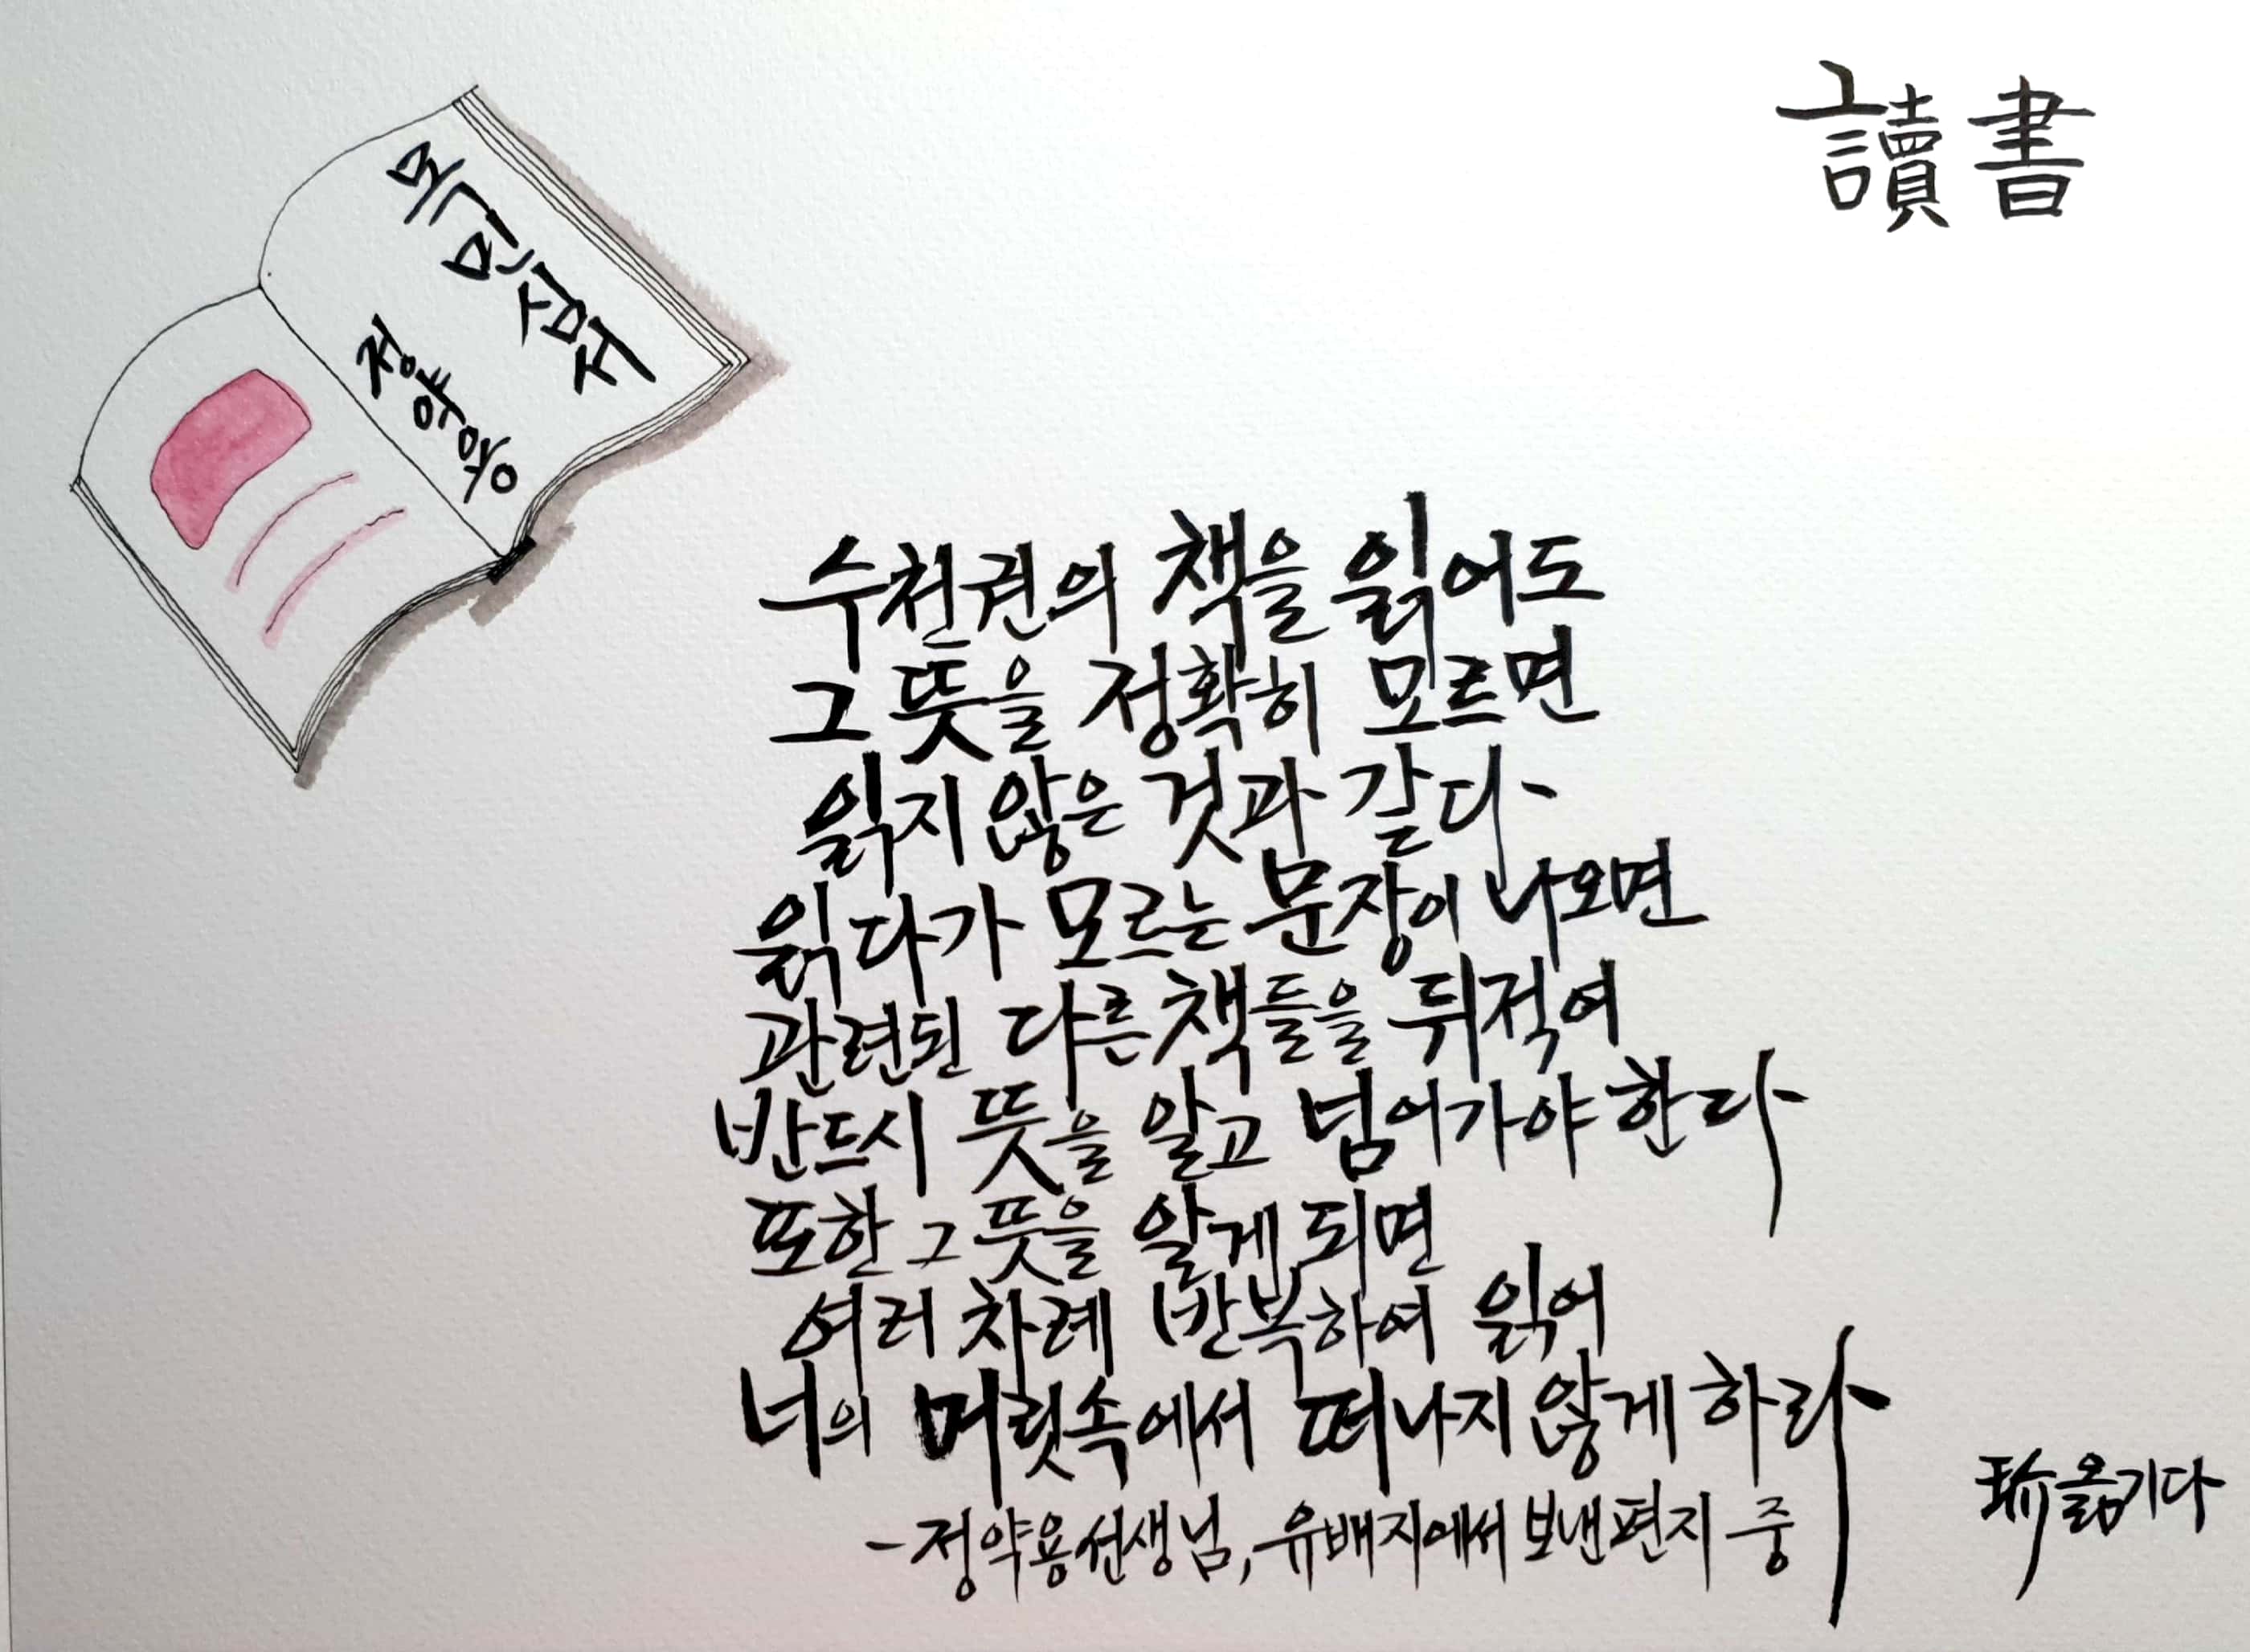 그讀書
목민심서
정약용
수천권의 책을 읽어도
그 뜻을 정확히 모르면
읽지 않은 것과 같다
읽다가 모르는 문장이 나오면
관련된 다른 책들을 뒤적여
반드시 뜻을 알고 넘어가야 한다
또한 그 뜻을 알게 되면
여러 차례 반복하여 읽어
너의 머릿속에서 떠나지 않게 하라
-정약용선생님, 유배지에서 보낸 편지 중
瑜옮기다